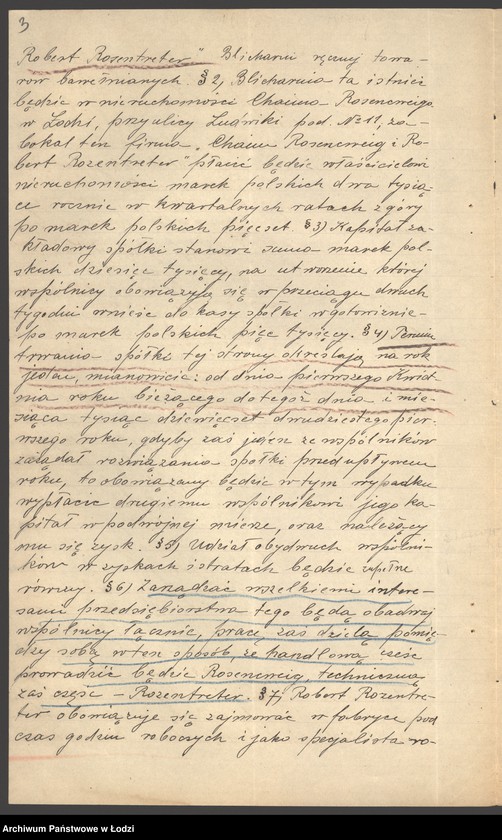 3
Robert Rosentreter" Blicharni ręcznej towa-
rów bawełnianych. § 2) Blicharnia ta istnieć
będzie w nieruchomości Chaima Rosencweiga
w Łodzi, przy ulicy Ludwiki pod № 11, za
lokal ten firma „Chaim Rosencweig i Ro-
bert Rozentreter" płacić będzie właścicielowi
nieruchomości marek polskich dwa tysią-
ce rocznie w kwartalnych ratach z góry
po marek polskich pięćset § 3) Kapitał za-
kładowy spółki stanowi suma marek pol-
skich dziesięć tysięcy, na utworzenie której
wspólnicy obowiązują się w przeciągu dwuch
tygodni wnieść do kasy spółki w gotowiźnie
po marek polskich pięć tysięcy. § 4) Termin
trwania spółki tej strony określają na rok
jeden, mianowicie: od dnia pierwszego Kwiet-
nia roku bieżącego do tegoż dnia i mie-
siąca tysiąc dziewięćset dwudziestego pier-
wszego roku, gdyby zaś jeden ze wspólników
zażądał rozwiązania spółki przed upływem
roku, to obowiązany będzie w tym wypadku
wypłacić drugiemu wspólnikowi jego ka-
pitał w podwójnej mierze, oraz należący
mu się zysk. § 5) Udział obydwuch wspólni-
ków w zyskach i stratach będzie zupełnie
równy. § 6) Zarządzać wszelkiemi intere-
sami przedsiębiorstwa tego będą obadwaj
wspólnicy łącznie, pracę zaś dzielą pomię-
dzy sobą w ten sposób, że handlową część
prowadzić będzie Rosencweig, techniczną
zaś część – Rozentreter. § 7) Robert Rozentre-
ter obowiązuje się zajmować w fabryce pod
czas godzin roboczych i jako specjalista ro-
Archiwum Państwowe w Łodzi